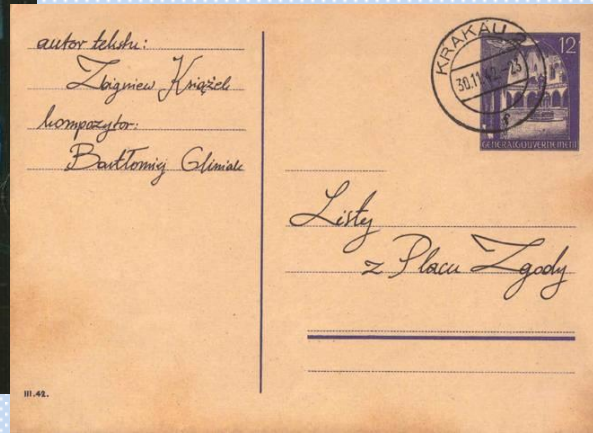 autor tekstu:
Zbigniew Książek
kompozytor:
Bartłomiej Gliniak
KRAKAU 2
30.11.42.-23
12
GENERALGOUVERNEMENT
Listy
z Placu Zgody
III.42.